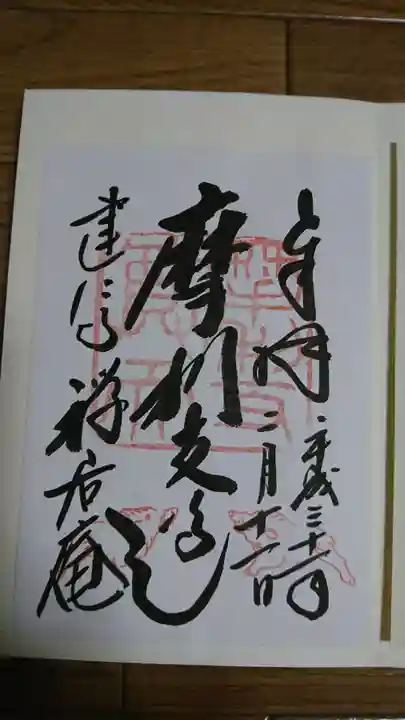 奉拝
平成三十一年
二月十一日
摩利支天
建仁寺 禅居庵